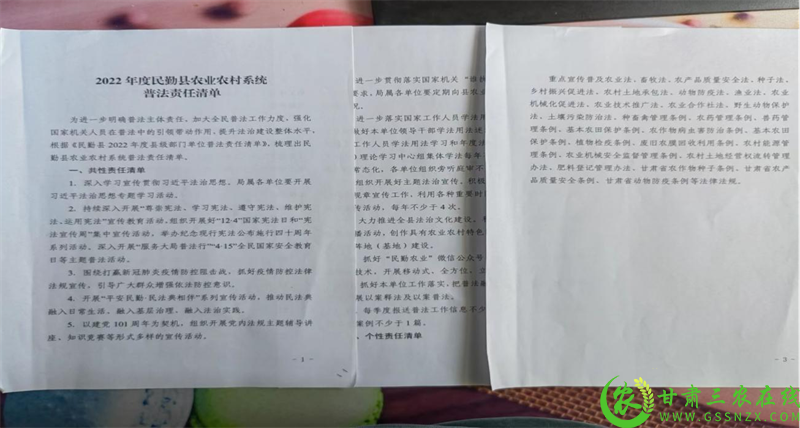 2022 年度民勤县农业农村系统
普法责任清单
为进一步明确普法主体责任，加大全民普法工作力度，强化
国家机关人员在普法中的引领带动作用，提升法治建设整体水平，
根据《民勤县 2022 年度县级部门单位普法责任清单》，梳理出民
勤县农业农村系统普法责任清单。
一、共性责任清单
1．深入学习宣传贯彻习近平法治思想，局属各单位要开展
习近平法治思想专题学习活动。
2．持续深入开展“尊崇宪法、学习宪法、遵守宪法、维护宪
法、运用宪法”宣传教育活动，组织开展好“12·4”国家宪法日和“宪
法宣传周”集中宣传活动，举办纪念现行宪法公布施行四十周年
系列活动。深入开展“服务大局普法行”“4·15”全民国家安全教育
日等主题普法活动。
3．围绕打赢新冠肺炎疫情防控阻击战，抓好疫情防控法律
法规宣传，引导广大群众增强依法防控意识。
4．开展“平安民勤·民法典相伴”系列宣传活动，推动民法典
融入日常生活，融入基层治理，融入法治实践。
5．以建党 101 周年为契机，组织开展党内法规主题辅导讲
座、知识竞赛等形式多样的宣传活动。
- 1 -
进一步贯彻落实国家机关“谁执
要求，局属各单位要定期向县农业
况。
进一步落实国家工作人员学法用
做好本单位领导干部学法用法述
工作人员学法用法学习和年度法
）理论学习中心组集体学法每年
常态化，各单位组织旁听庭审不
组织开展好主题法治宣传。积极
规章宣传工作，利用各种重要时间
传活动，每年不少于 4 次。
大力推进全县法治文化建设。积
播活动，创作具有农业农村特色
阵地（基地）建设。
抓好“民勤农业”微信公众号
技术，开展移动式、全方位、
抓好本单位工作落实，把普法融
展以案释法及以案普法。
每季度推送普法工作信息不少
案例不少于 1 届。
、个性责任清单
重点宣传普及农业法、畜牧法、农产品质量安全法、种子法、
乡村振兴促进法、农村土地承包法、动物防疫法、渔业法、农业
机械化促进法、农业技术推广法、农业合作社法、野生动物保护
法、土壤污染防治法、种畜禽管理条例、农药管理条例、兽药管
理条例、基本农田保护条例、农作物病虫害防治条例、基本农田
保护条例、植物检疫条例、废旧农膜回收利用条例、农村能源管
理条例、农业机械安全监督管理条例、农村土地经营权流转管理
办法、肥料登记管理办法、甘肃省农作物种子条例、甘肃省农产
品质量安全条例、甘肃省动物防疫条例等法律法规。
- 3 -
甘肃三农在线
WWW.GSSNZX.COM